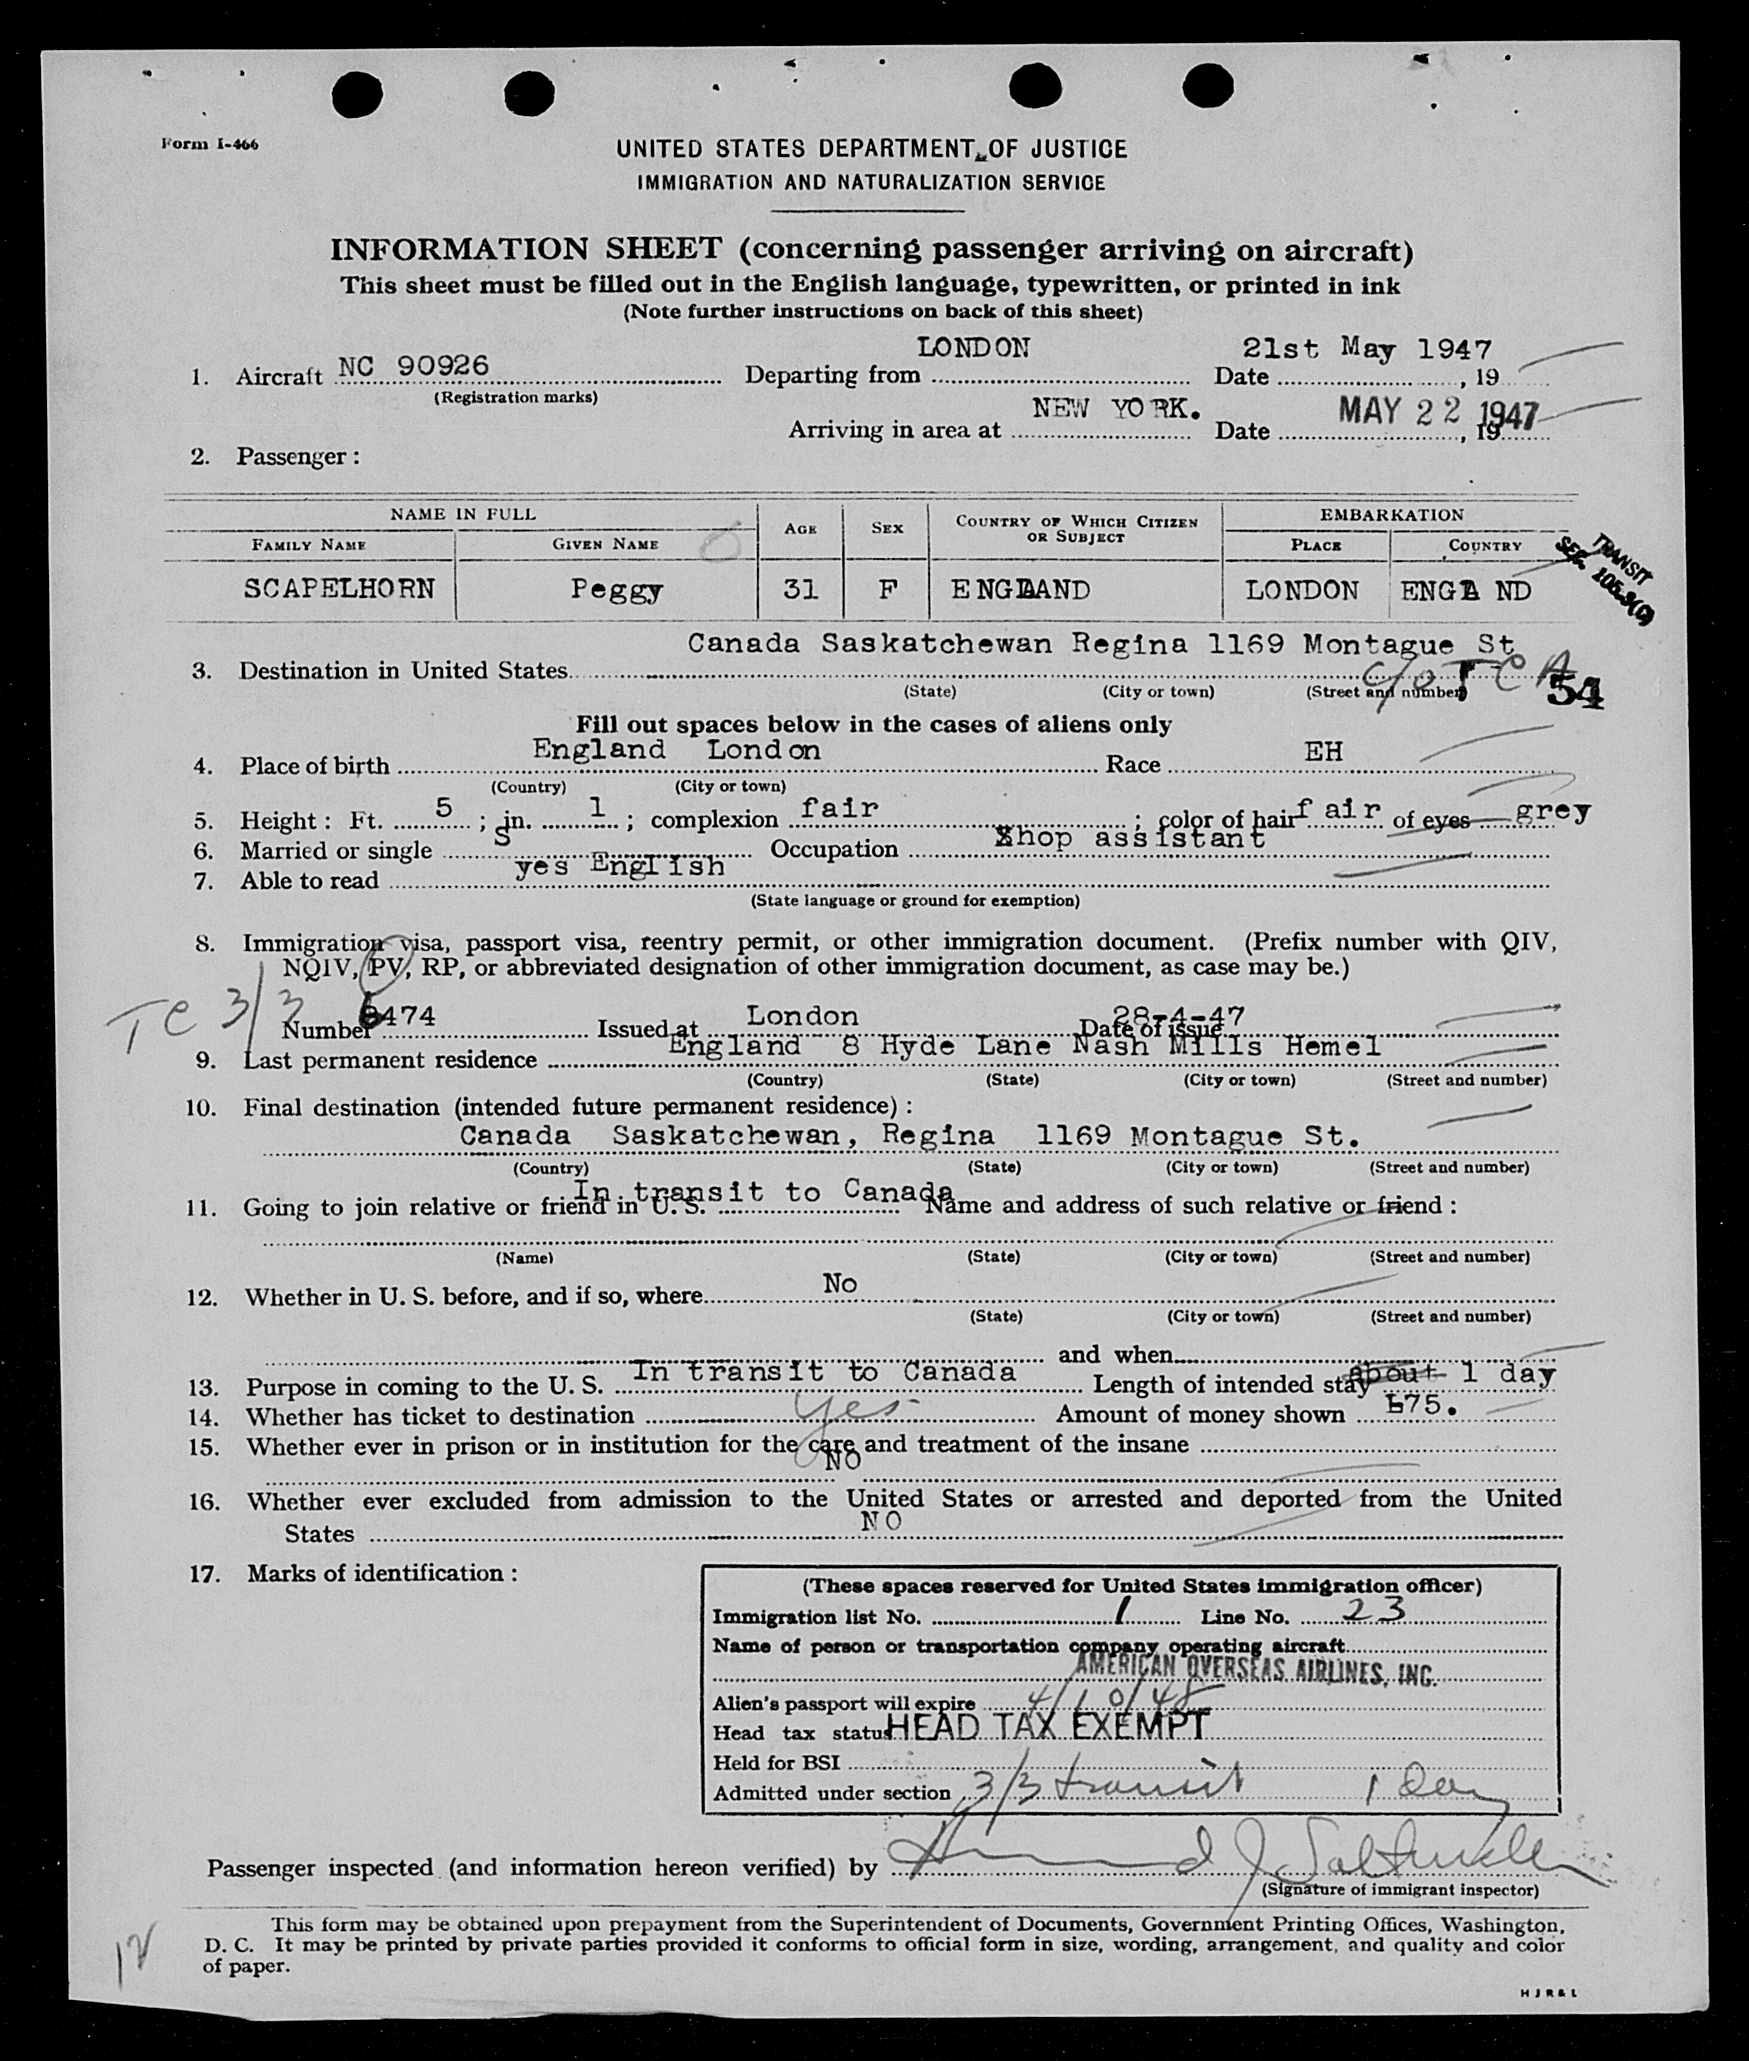 Form I-466
UNITED STATES DEPARTMENT OF JUSTICE
IMMIGRATION AND NATURALIZATION SERVICE
INFORMATION SHEET (concerning passenger arriving on aircraft)
This sheet must be filled out in the English language, typewritten, or printed in ink
(Note further instructions on back of this sheet)
1. Aircraft NC 90926 Departing from LONDON Date 21st May 1947, 19
(Registration marks)
Arriving in area at NEW YORK. Date MAY 22 1947, 19
2. Passenger:
NAME IN FULL AGE SEX COUNTRY OF WHICH CITIZEN OR SUBJECT EMBARKATION
FAMILY NAME GIVEN NAME PLACE COUNTRY
SCAPELHORN Peggy 31 F ENGLAND LONDON ENGLA ND
TRANSIT
SEC. 105.3(C)
Canada Saskatchewan Regina 1169 Montague St
3. Destination in United States c/o TCA 54
(State) (City or town) (Street and number)
Fill out spaces below in the cases of aliens only
4. Place of birth England London Race EH
(Country) (City or town)
5. Height: Ft. 5; in. 1; complexion fair; color of hair fair of eyes grey
6. Married or single S Occupation Shop assistant
7. Able to read yes English
(State language or ground for exemption)
8. Immigration visa, passport visa, reentry permit, or other immigration document. (Prefix number with QIV,
NQIV, PV, RP, or abbreviated designation of other immigration document, as case may be.)
TC 3/3
Number 6474 Issued at London Date of issue 28-4-47
9. Last permanent residence England 8 Hyde Lane Nash Mills Hemel
(Country) (State) (City or town) (Street and number)
10. Final destination (intended future permanent residence):
Canada Saskatchewan, Regina 1169 Montague St.
(Country) (State) (City or town) (Street and number)
11. Going to join relative or friend in U. S. In transit to Canada Name and address of such relative or friend:
(Name) (State) (City or town) (Street and number)
12. Whether in U. S. before, and if so, where No
(State) (City or town) (Street and number)
and when
13. Purpose in coming to the U. S. In transit to Canada Length of intended stay about 1 day
14. Whether has ticket to destination yes Amount of money shown £75.
15. Whether ever in prison or in institution for the care and treatment of the insane
NO
16. Whether ever excluded from admission to the United States or arrested and deported from the United
States NO
17. Marks of identification:
(These spaces reserved for United States immigration officer)
Immigration list No. 1 Line No. 23
Name of person or transportation company operating aircraft
AMERICAN OVERSEAS AIRLINES, INC.
Alien's passport will expire 4/10/48
Head tax status HEAD TAX EXEMPT
Held for BSI
Admitted under section 3/3 transit 1 Day
Passenger inspected (and information hereon verified) by
(Signature of immigrant inspector)
This form may be obtained upon prepayment from the Superintendent of Documents, Government Printing Offices, Washington,
D. C. It may be printed by private parties provided it conforms to official form in size, wording, arrangement, and quality and color
of paper.
12
HJR&L